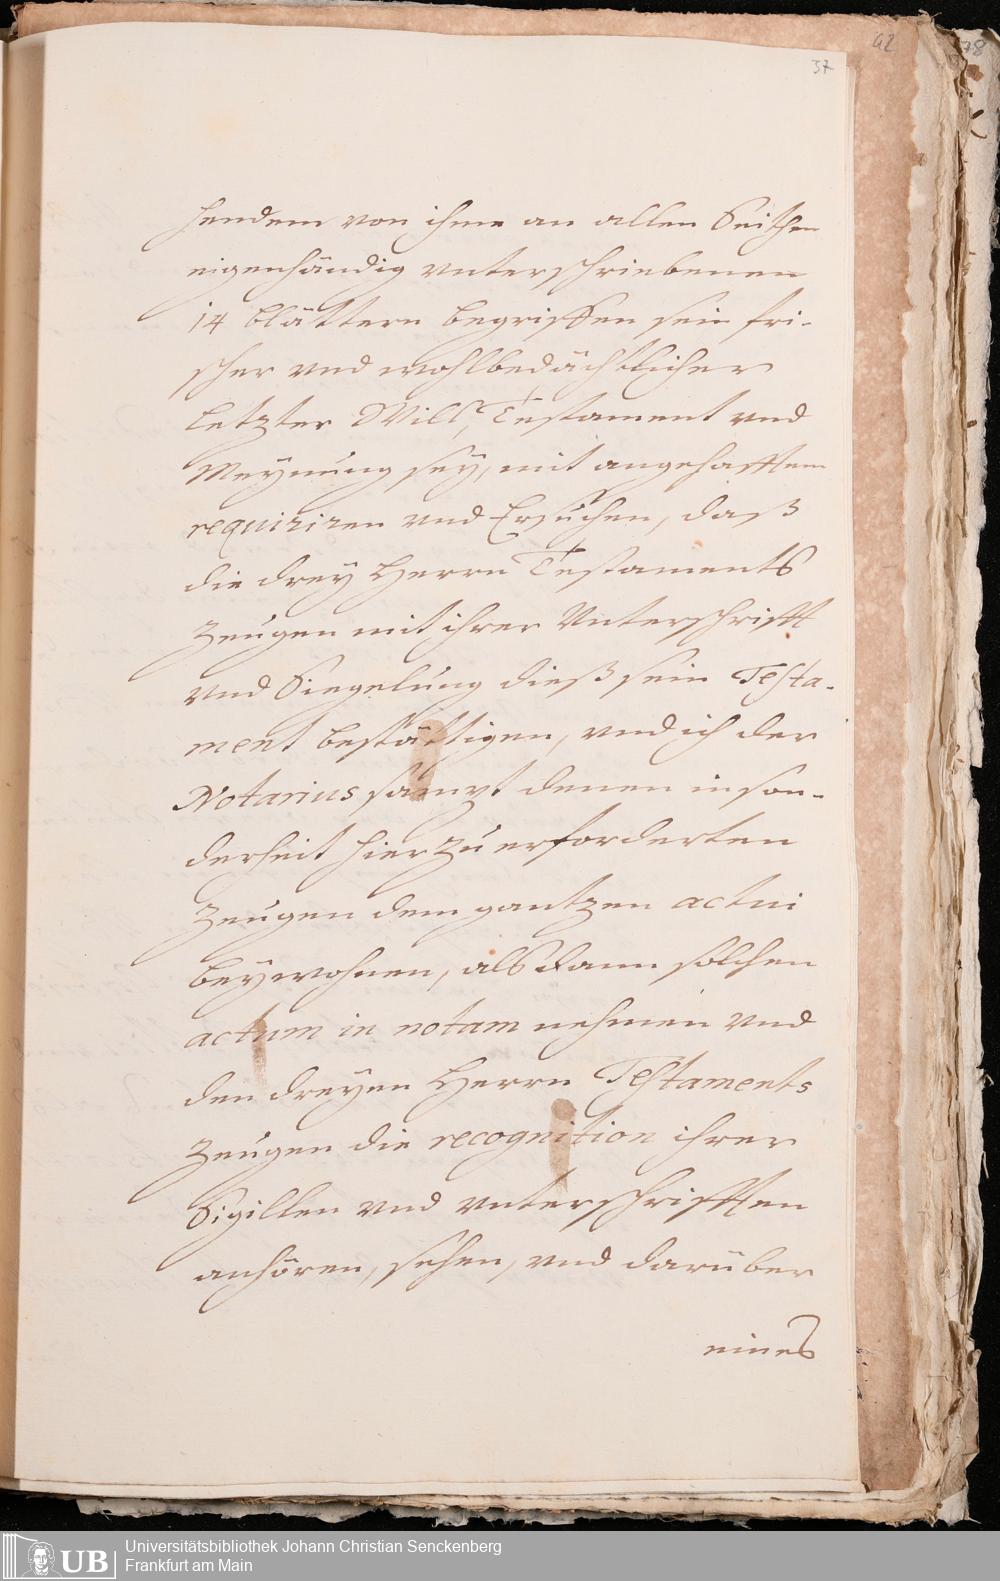 42
78
37
hendem von ihme an allen Seithen
eigenhändig vnterschriebenen
14 blättern begriffen sein fri-
scher vnd wohlbedächtlicher
letzter Will, Testament vnd
Meynung sey, mit angehafftem
requiriren vnd Ersuchen, daß
die drey Herrn Testaments
Zeugen mit ihrer Vnterschrifft
vnd Siegelung dieß sein Testa-
ment bestättigen, vnd ich der
Notarius sampt denen inson-
derheit hierzu erforderten
Zeugen dem gantzen actui
beywohnen, alsdann solchen
actum in notam nehmen vnd
den dreyen Herrn Testaments
Zeugen die recognition ihrer
Sigillen vnd vnterschrifften
anhören, sehen, vnd darüber
eines
UB
Universitätsbibliothek Johann Christian Senckenberg
Frankfurt am Main